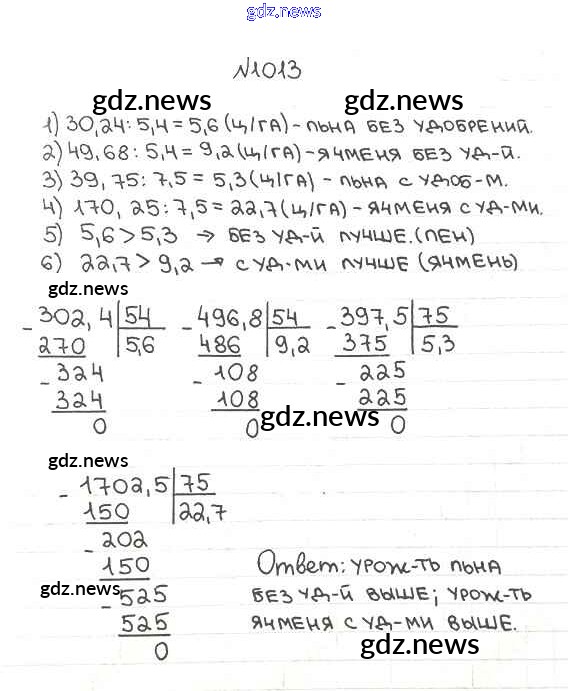 gdz.news
№1013
gdz.news gdz.news
1) 30,24 : 5,4 = 5,6 (Ц/ГА) - ЛЬНА БЕЗ УДОБРЕНИЙ.
2) 49,68 : 5,4 = 9,2 (Ц/ГА) - ЯЧМЕНЯ БЕЗ УД-Й.
3) 39,75 : 7,5 = 5,3 (Ц/ГА) - ЛЬНА С УДОБ-М.
4) 170,25 : 7,5 = 22,7 (Ц/ГА) - ЯЧМЕНЯ С УД-МИ.
5) 5,6 > 5,3 → БЕЗ УД-Й ЛУЧШЕ. (ЛЕН)
6) 22,7 > 9,2 → С УД-МИ ЛУЧШЕ (ЯЧМЕНЬ)
gdz.news gdz.news
- 302,4 | 54 - 496,8 | 54 - 397,5 | 75
270 | 5,6 486 | 9,2 375 | 5,3
- 324 - 108 - 225
324 108 225
0 0 0
gdz.news
gdz.news
- 1702,5 | 75
150 | 22,7
- 202
150 Ответ: УРОЖ-ТЬ ЛЬНА
gdz.news
- 525 БЕЗ УД-Й ВЫШЕ; УРОЖ-ТЬ
525 ЯЧМЕНЯ С УД-МИ ВЫШЕ.
0
gdz.news